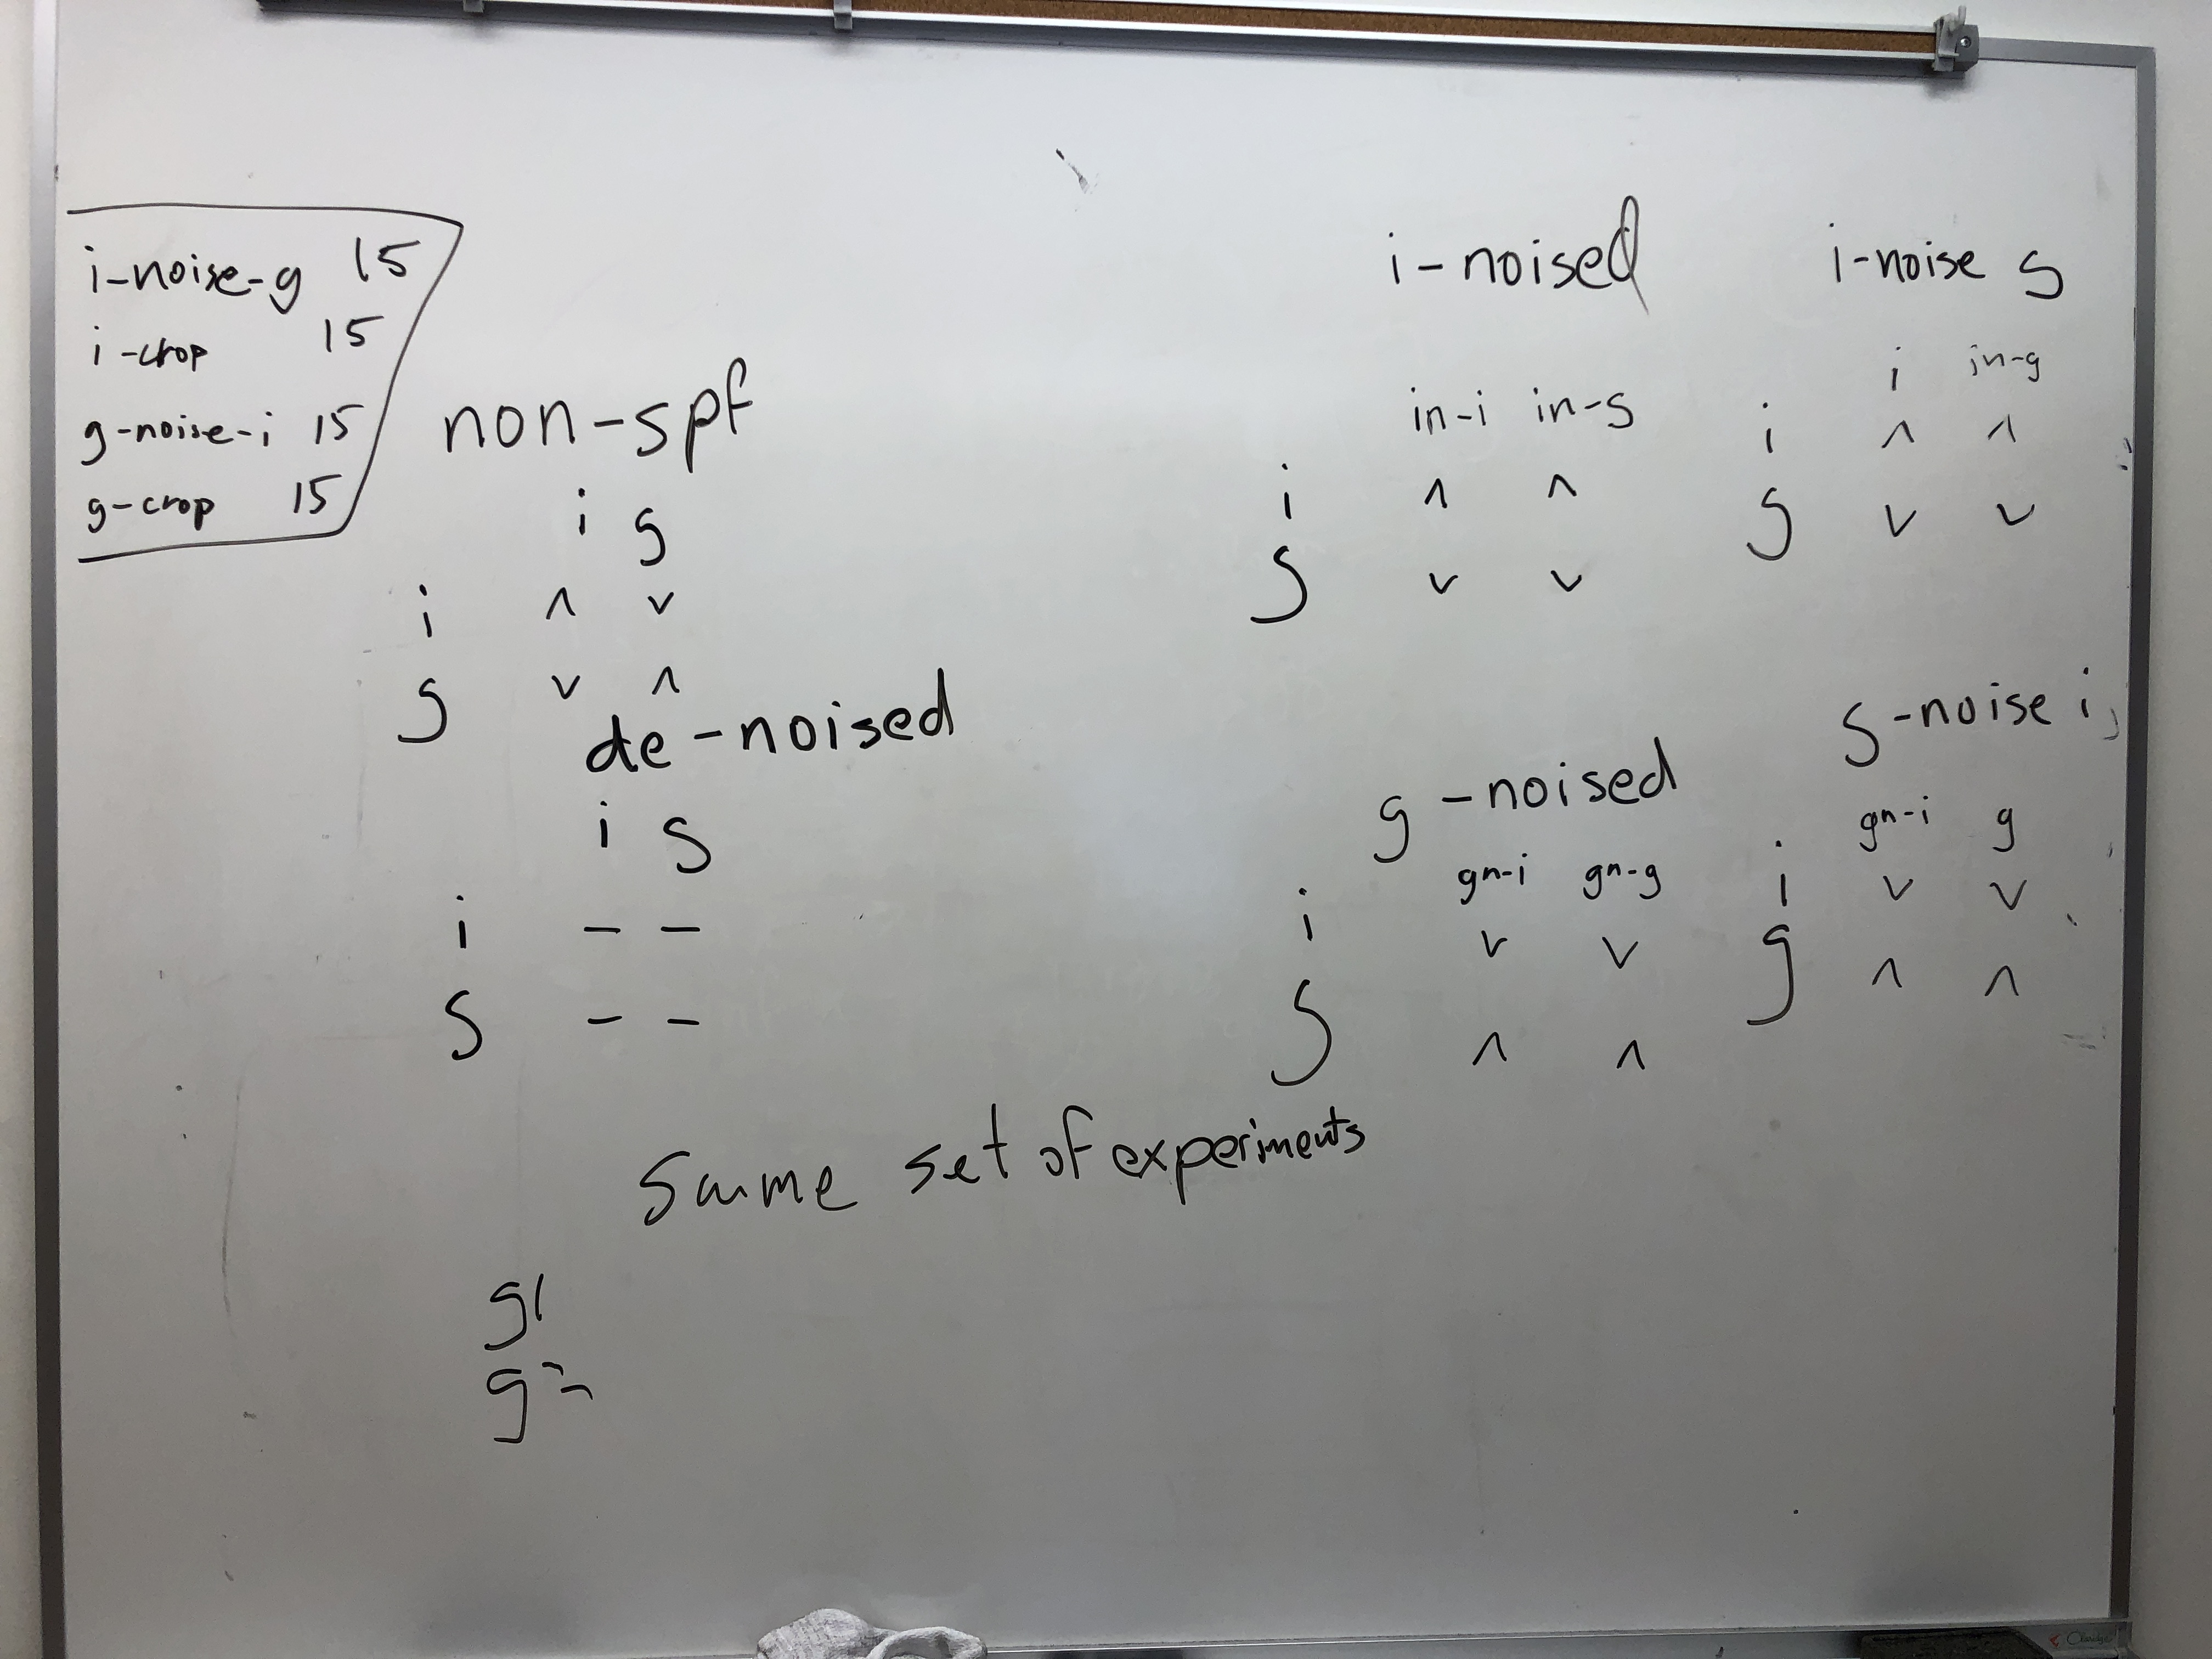 i-noise-g 15
i-crop 15
g-noise-i 15
g-crop 15
non-spf
i g
i ∧ ∨
g ∨ ∧
de-noised
i g
i - -
g - -
i-noised
in-i in-g
i ∧ ∧
g ∨ ∨
i-noise g
i in-g
i ∧ ∧
g ∨ ∨
g-noised
gn-i gn-g
i ∨ ∨
g ∧ ∧
g-noise i
gn-i g
i ∨ ∨
g ∧ ∧
same set of experiments
g1